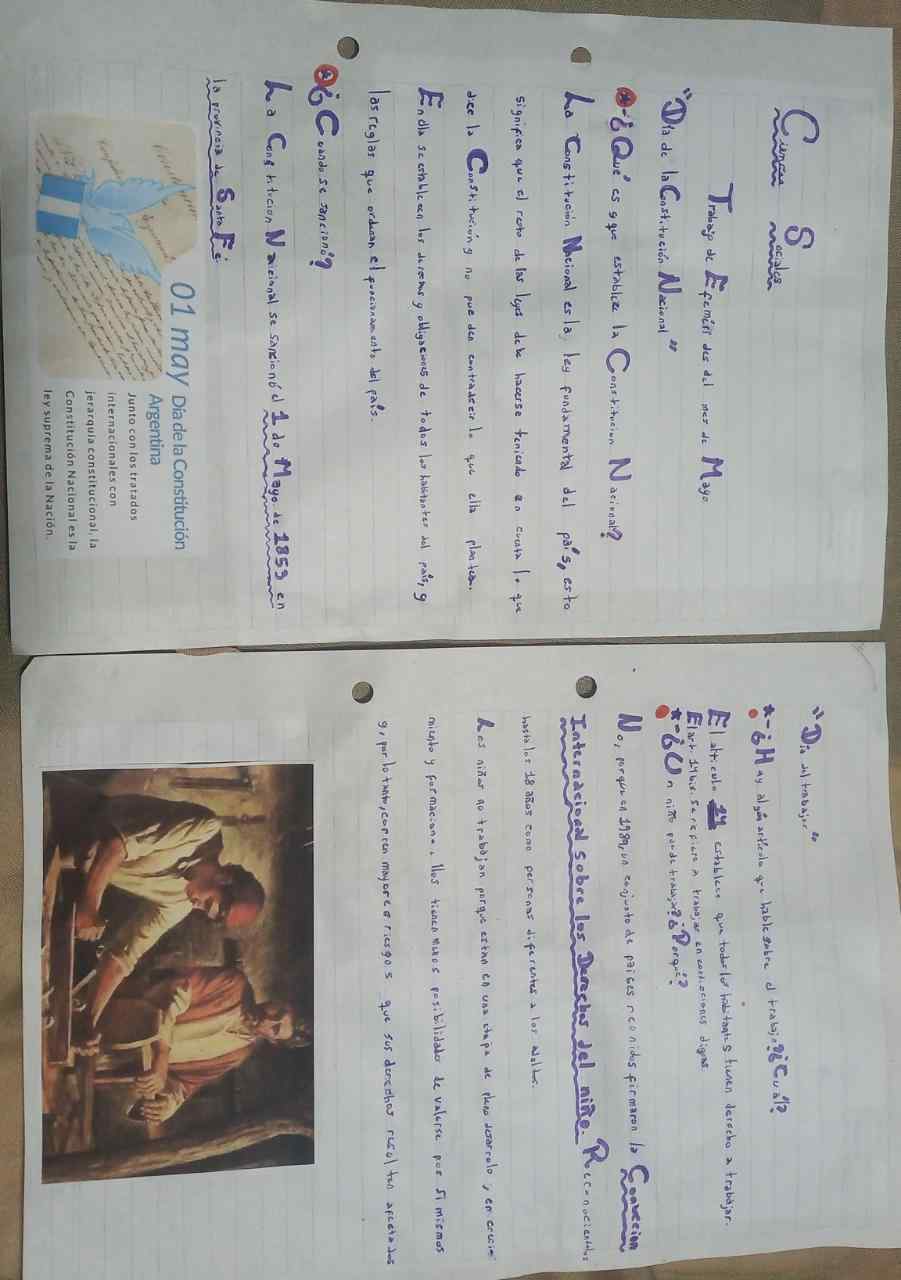 Ciencias Sociales
Trabajo de Efeméri des del mes de Mayo
"Día de la Constitución Nacional"
*-¿Qué es y que establece la Constitucion Nacional?
La Constitución Nacional es la ley fundamental del país, esto
significa que el resto de las leyes debe hacerse teniendo en cuenta lo que
dice la Constitución y no pueden contradecir lo que ella plantea.
En ella se establecen los derechos y obligaciones de todos los habitantes del país, y
las reglas que ordenan el funcionamiento del país.
*¿Cuando se sancionó?
La Constitucion Nacional se sancionó el 1 de Mayo de 1853 en
la provincia de Santa Fé.
01 may Día de la Constitución
Argentina
Junto con los tratados
internacionales con
jerarquía constitucional, la
Constitución Nacional es la
ley suprema de la Nación.
"Dia del trabajor"
*-¿Hay algún artículo que hable sobre el trabajo? ¿Cuál?
El artículo 14 establece que todos los habitantes tienen derecho a trabajar.
El art. 14 bis. se refiere a trabajar en condiciones dignas.
*-¿Un niño puede trabajar? ¿Porqué?
No, porque en 1989, un conjunto de países reunidos firmaron la Convención
Internacional sobre los Derechos del niño. Reconociendolos
hasta los 18 años como personas diferentes a los adultos.
Los niños no trabajan porque están en una etapa de pleno desarrolo, en creci
miento y formacion. Ellos tienen menos posibilidades de valerse por si mismos
y, por lo tanto, corren mayores riesgos que sus derechos resulten afectados